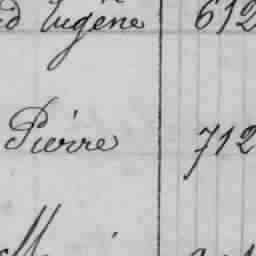 Eugène 612
Pierre 712